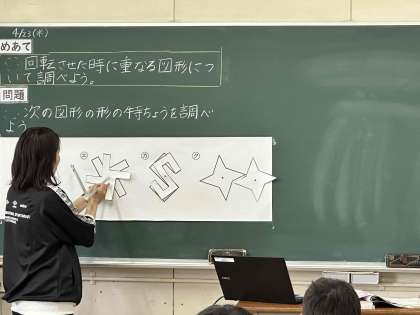 4/23(水)
めあて
回転させた時に重なる図形につ
いて調べよう。
問題
次の図形の形の特ちょうを調べ
よう
エ オ ク